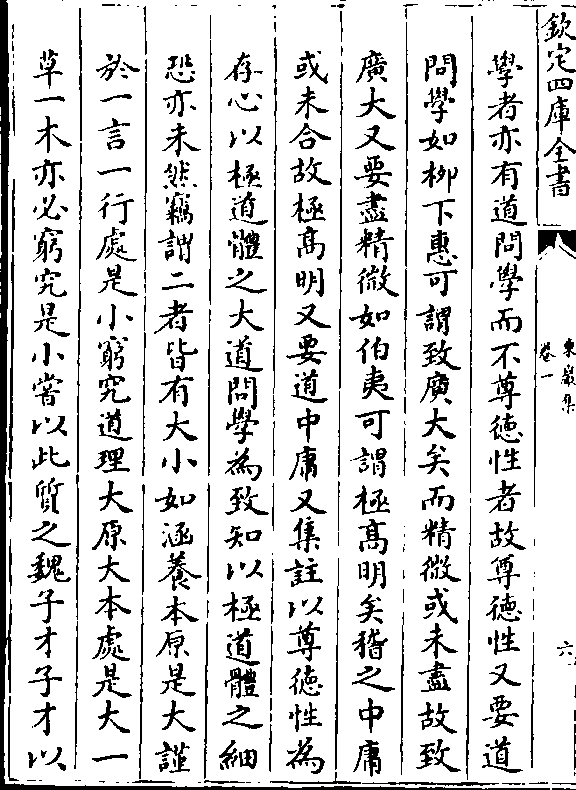 欽定四庫全書
東巖集
卷一
六
學者亦有道問學而不尊德性者故尊德性又要道
問學如柳下惠可謂致廣大矣而精微或未盡故致
廣大又要盡精微如伯夷可謂極髙明矣稽之中庸
或未合故極髙明又要道中庸又集註以尊德性為
存心以極道體之大道問學為致知以極道體之細
恐亦未然竊謂二者皆有大小如涵養本原是大謹
於一言一行處是小窮究道理大原大本處是大一
草一木亦必窮究是小嘗以此質之魏子才子才以